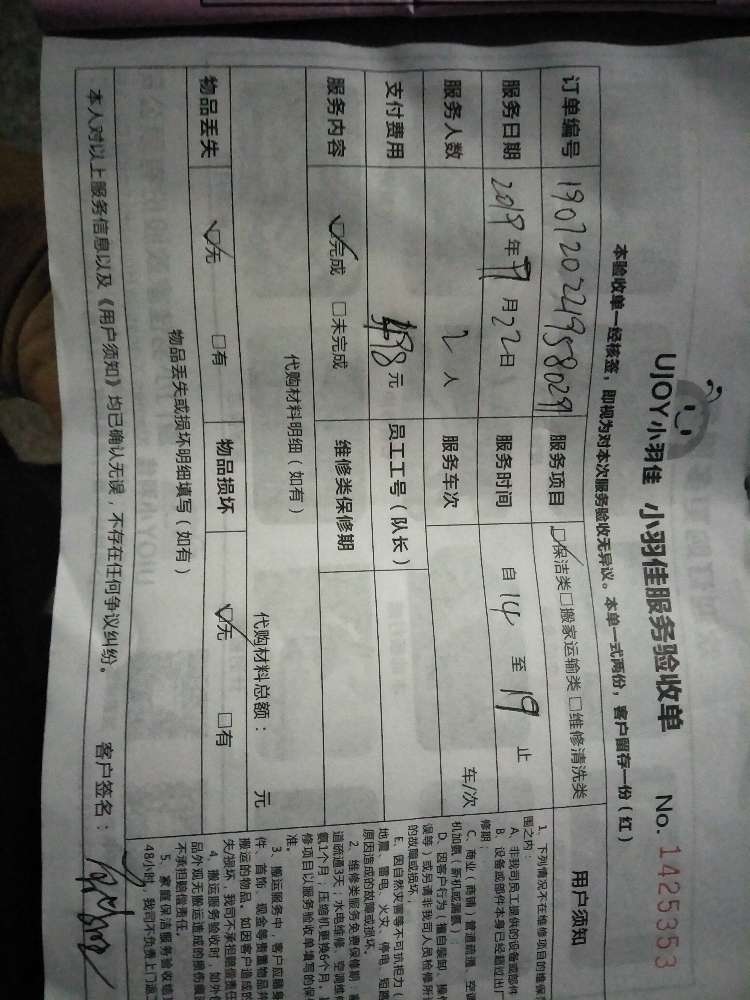 UJOY小羽佳 小羽佳服务验收单 No. 1425353
本验收单一经核签，即视为对本次服务验收无异议。本单一式两份，客户留存一份（红）
订单编号 190720221958029 服务项目 ☑保洁类□搬家运输类 □维修清洗类
服务日期 2019年 月22日 服务时间 自 14 至 19 止
服务人数 2 人 服务车次 车/次
支付费用 498元 员工工号（队长）
服务内容 ☑完成 □未完成 维修类保修期
代购材料明细（如有） 代购材料总额： 元
物品丢失 ☑无 □有 物品损坏 ☑无 □有
物品丢失或损坏明细填写（如有）
本人对以上服务信息以及《用户须知》均已确认无误，不存在任何争议纠纷。 客户签名：
用户须知
1、下列情况不在维修项目的维保
围之内：
A、非我司员工提供的设备或部件
B、设备或部件本身已经超过出厂
修期；
C、商业（商铺）管道疏通、空调
机加氨（新机或漏氨）
D、因客户行为（擅自装卸、操作
误等）或启请非我司人员检修所
的故障或损坏；
E、因自然灾害等不可抗拒为（
地震、雷电、火灾、停电、短路
原因造成的故障或损坏。
2、维修类服务免费保修期，家
道疏通3天；水电维修、空调维修
氨1个月，压缩机更换6个月，
修项目以服务验收单填写的保
准。
3、搬运服务中，客户应随身
件、首饰、现金等贵重物品并
搬运的物品，如因客户造成的
失/损坏，我司不承担赔偿责任
4、搬运服务验收时，如外包
品外观无搬运造成的损伤痕
不承担赔偿责任。
5、家庭保洁服务验收
48小时，我司不负责上门返